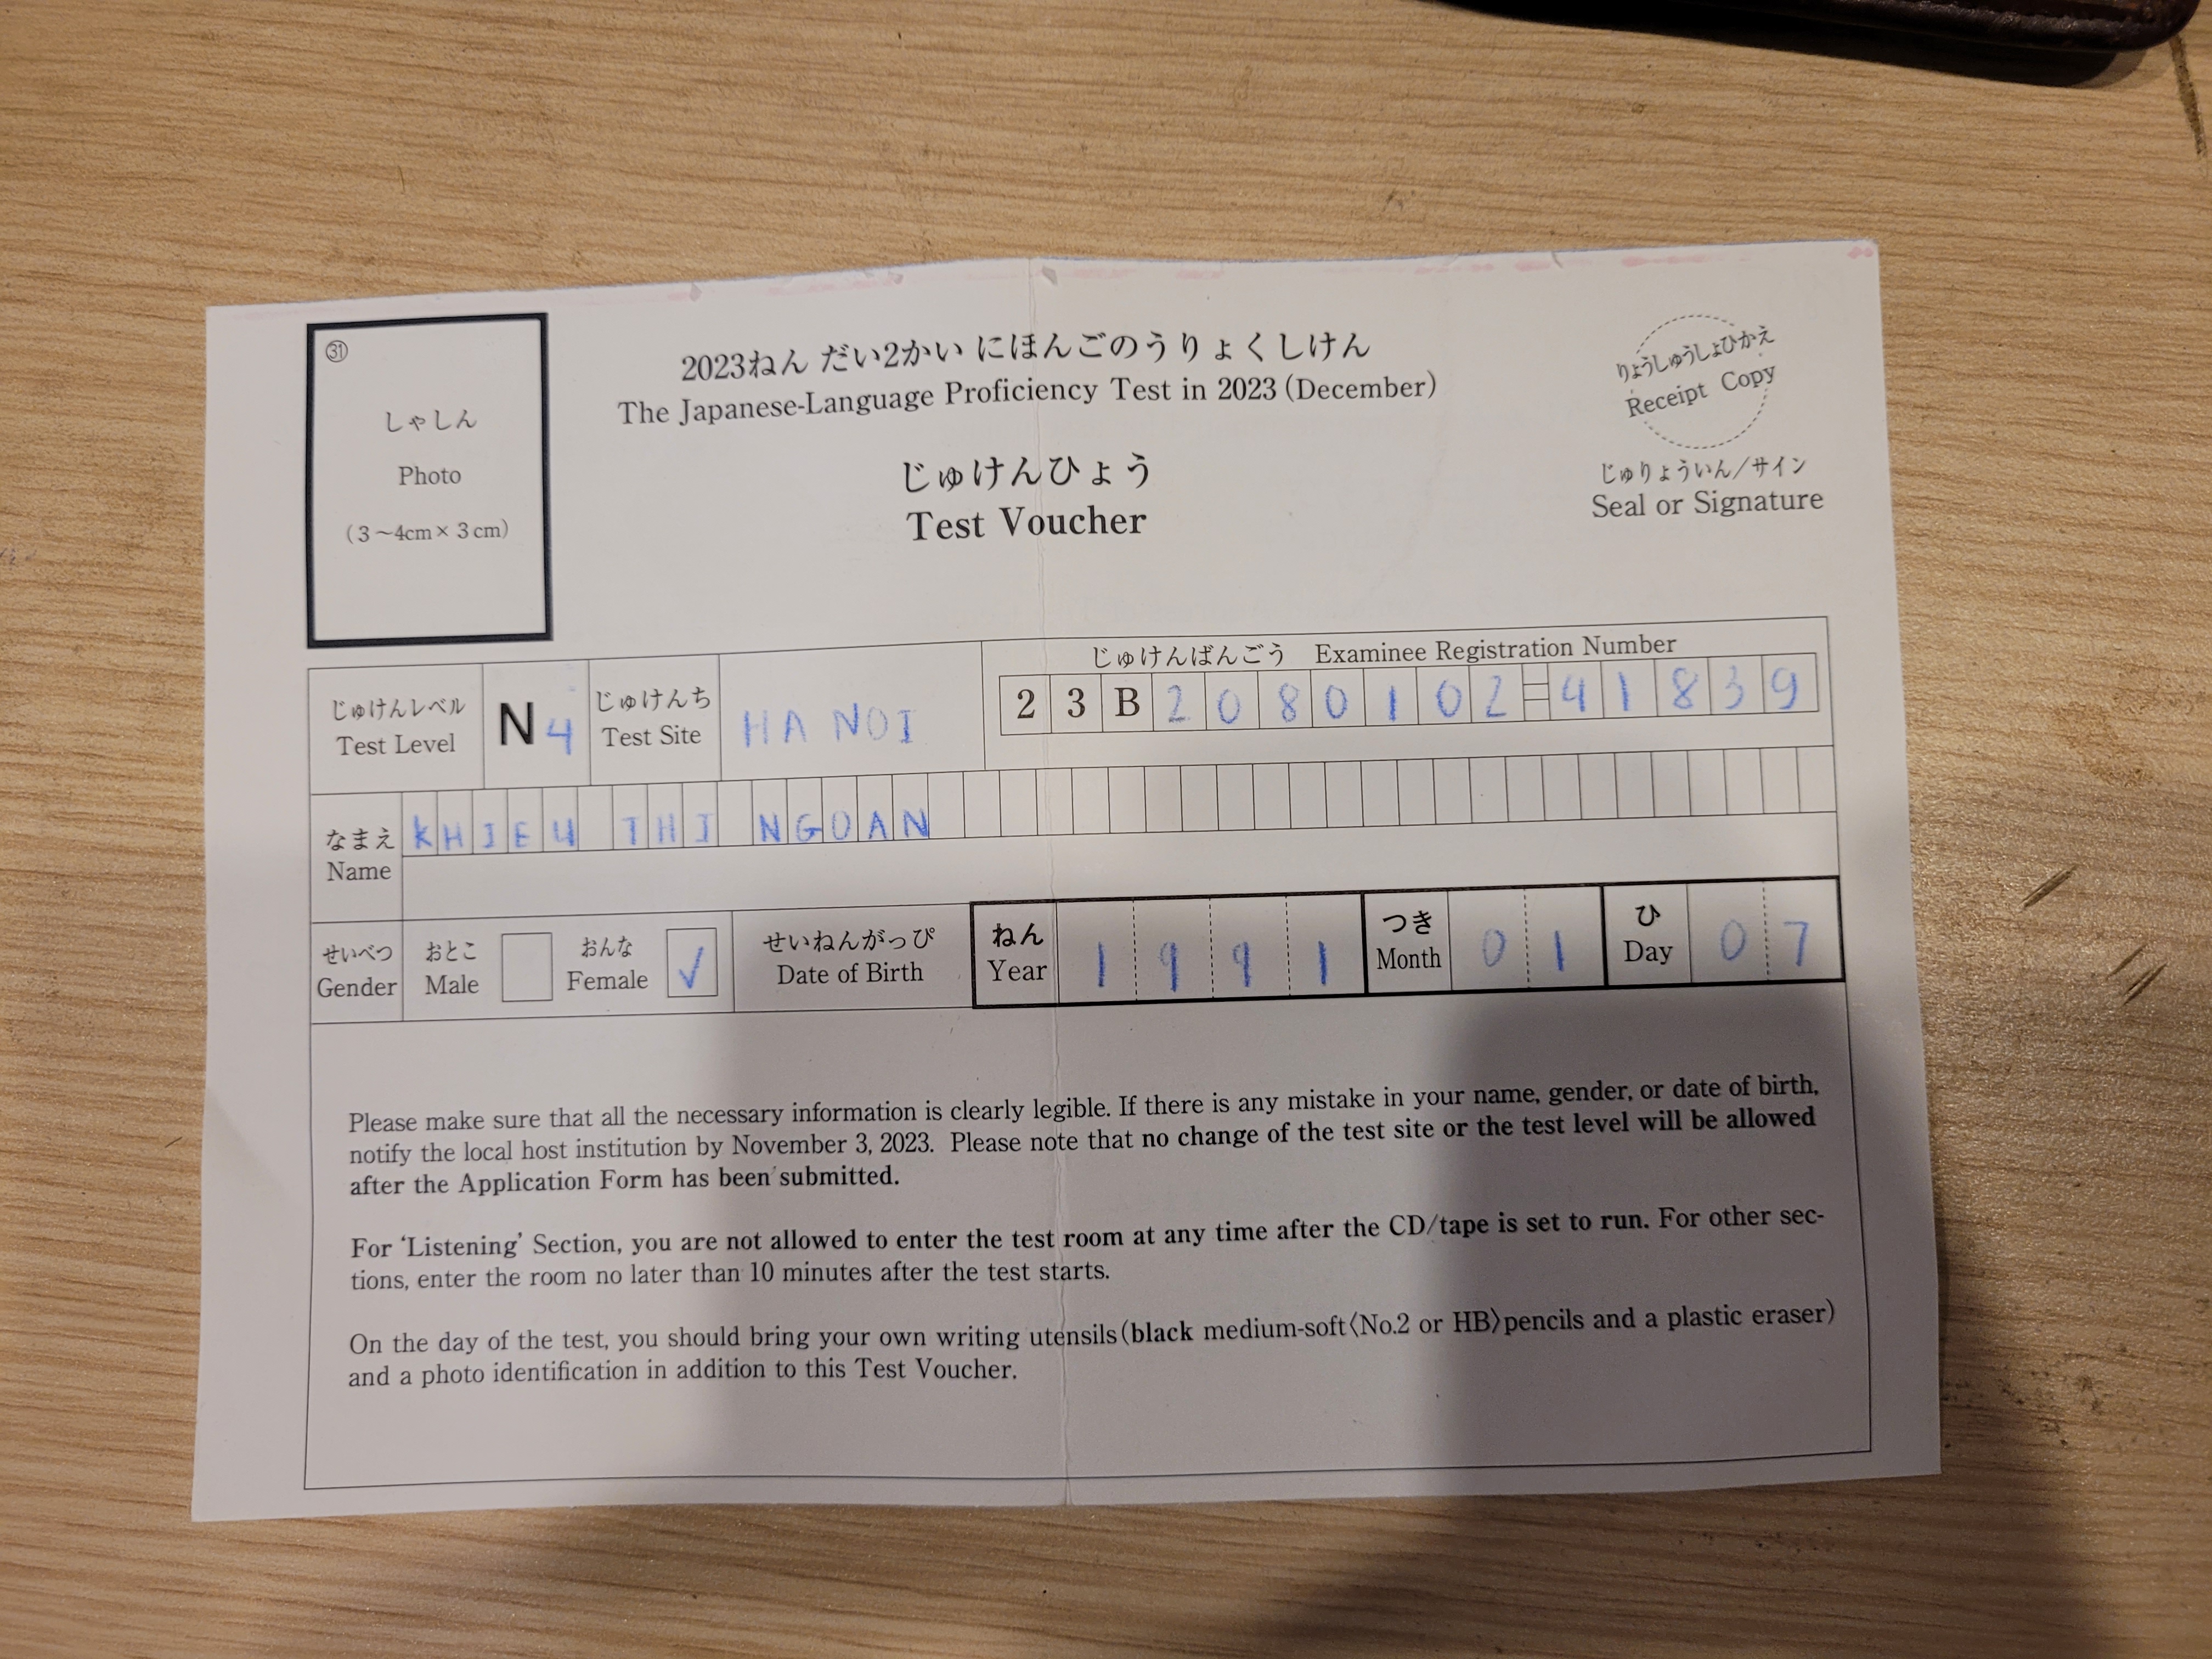 2023ねん だい2かい にほんごのうりょくしけん
The Japanese-Language Proficiency Test in 2023 (December)
じゅけんひょう
Test Voucher
㉛
しゃしん
Photo
(3～4cm×3cm)
りょうしゅうしょひかえ
Receipt Copy
じゅりょういん/サイン
Seal or Signature
じゅけんレベル
Test Level
N4
じゅけんち
Test Site
HA NOI
じゅけんばんごう Examinee Registration Number
23B2080102-41839
なまえ
Name
KHIEU THI NGOAN
せいべつ
Gender
おとこ
Male
おんな
Female ✓
せいねんがっぴ
Date of Birth
ねん
Year
1991
つき
Month
01
ひ
Day
07
Please make sure that all the necessary information is clearly legible. If there is any mistake in your name, gender, or date of birth,
notify the local host institution by November 3, 2023. Please note that no change of the test site or the test level will be allowed
after the Application Form has been submitted.
For 'Listening' Section, you are not allowed to enter the test room at any time after the CD/tape is set to run. For other sec-
tions, enter the room no later than 10 minutes after the test starts.
On the day of the test, you should bring your own writing utensils (black medium-soft〈No.2 or HB〉pencils and a plastic eraser)
and a photo identification in addition to this Test Voucher.